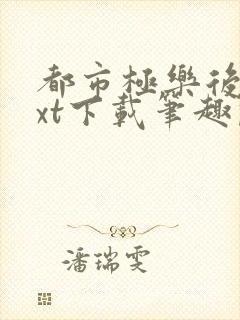 都市極樂後
xt下載筆趣
潘瑞雯